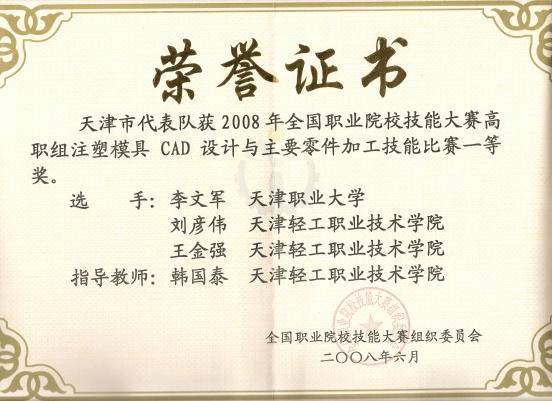 荣誉证书
天津市代表队获2008年全国职业院校技能大赛高
职组注塑模具 CAD 设计与主要零件加工技能比赛一等
奖。
选 手：李文军 天津职业大学
刘彦伟 天津轻工职业技术学院
王金强 天津轻工职业技术学院
指导教师：韩国泰 天津轻工职业技术学院
全国职业院校技能大赛组织委员会
二〇〇八年六月